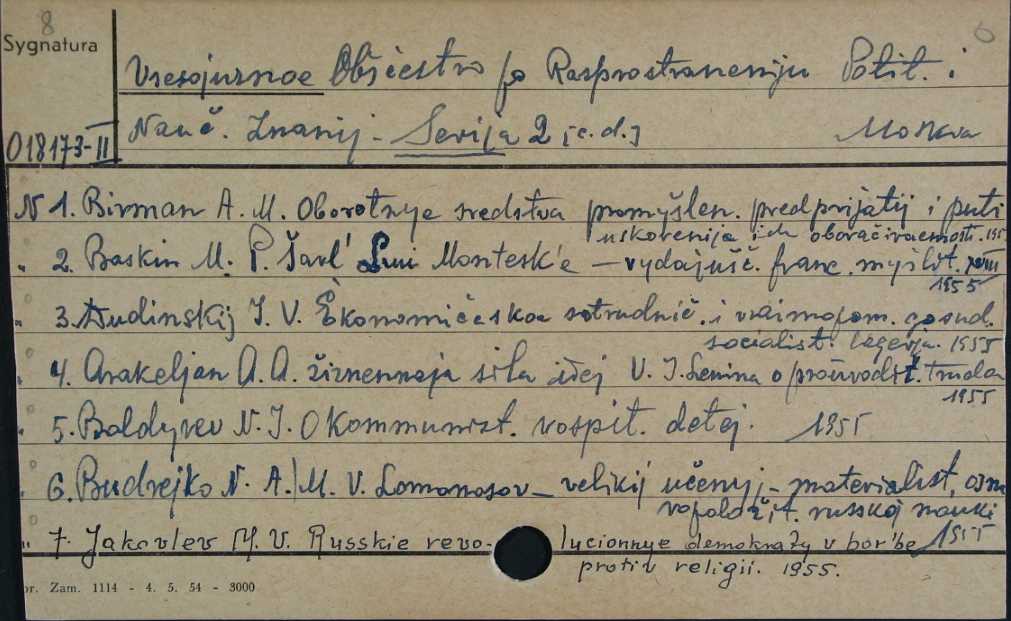 8
6
Sygnatura
Vsesojuznoe Obščestvo po Rasprostraneniju Polit. i
018173-II
Nauč. Znanij - Serija 2 [c.d.] Moskva
N 1. Birman A. M. Oborotnye sredstva promyšlen. predprijatij i puti
uskorenija ich oboračivaemosti. 195
" 2. Baskin M. P. Šarl' Lui Montesk'e - vydajušč. franc. myslit. XVIII
1955
" 3. Dudinskij I. V. Ėkonomičeskoe sotrudnič. i vzaimopom. gosud.
socialist. lagerja. 1955
" 4. Arakeljan A. A. žiznennaja sila idej V. I. Lenina o proizvodit. truda
1955
" 5. Boldyrev N. I. O kommunist. vospit. detej. 1955
" 6. Budrejko N. A. M. V. Lomonosov - velikij učenyj - materialist, osno
vopoložit. russkoj nauki
1955
" 7. Jakovlev M. V. Russkie revo- lucionnye demokraty v bor'be
protiv religii. 1955.
or. Zam. 1114 - 4. 5. 54 - 3000